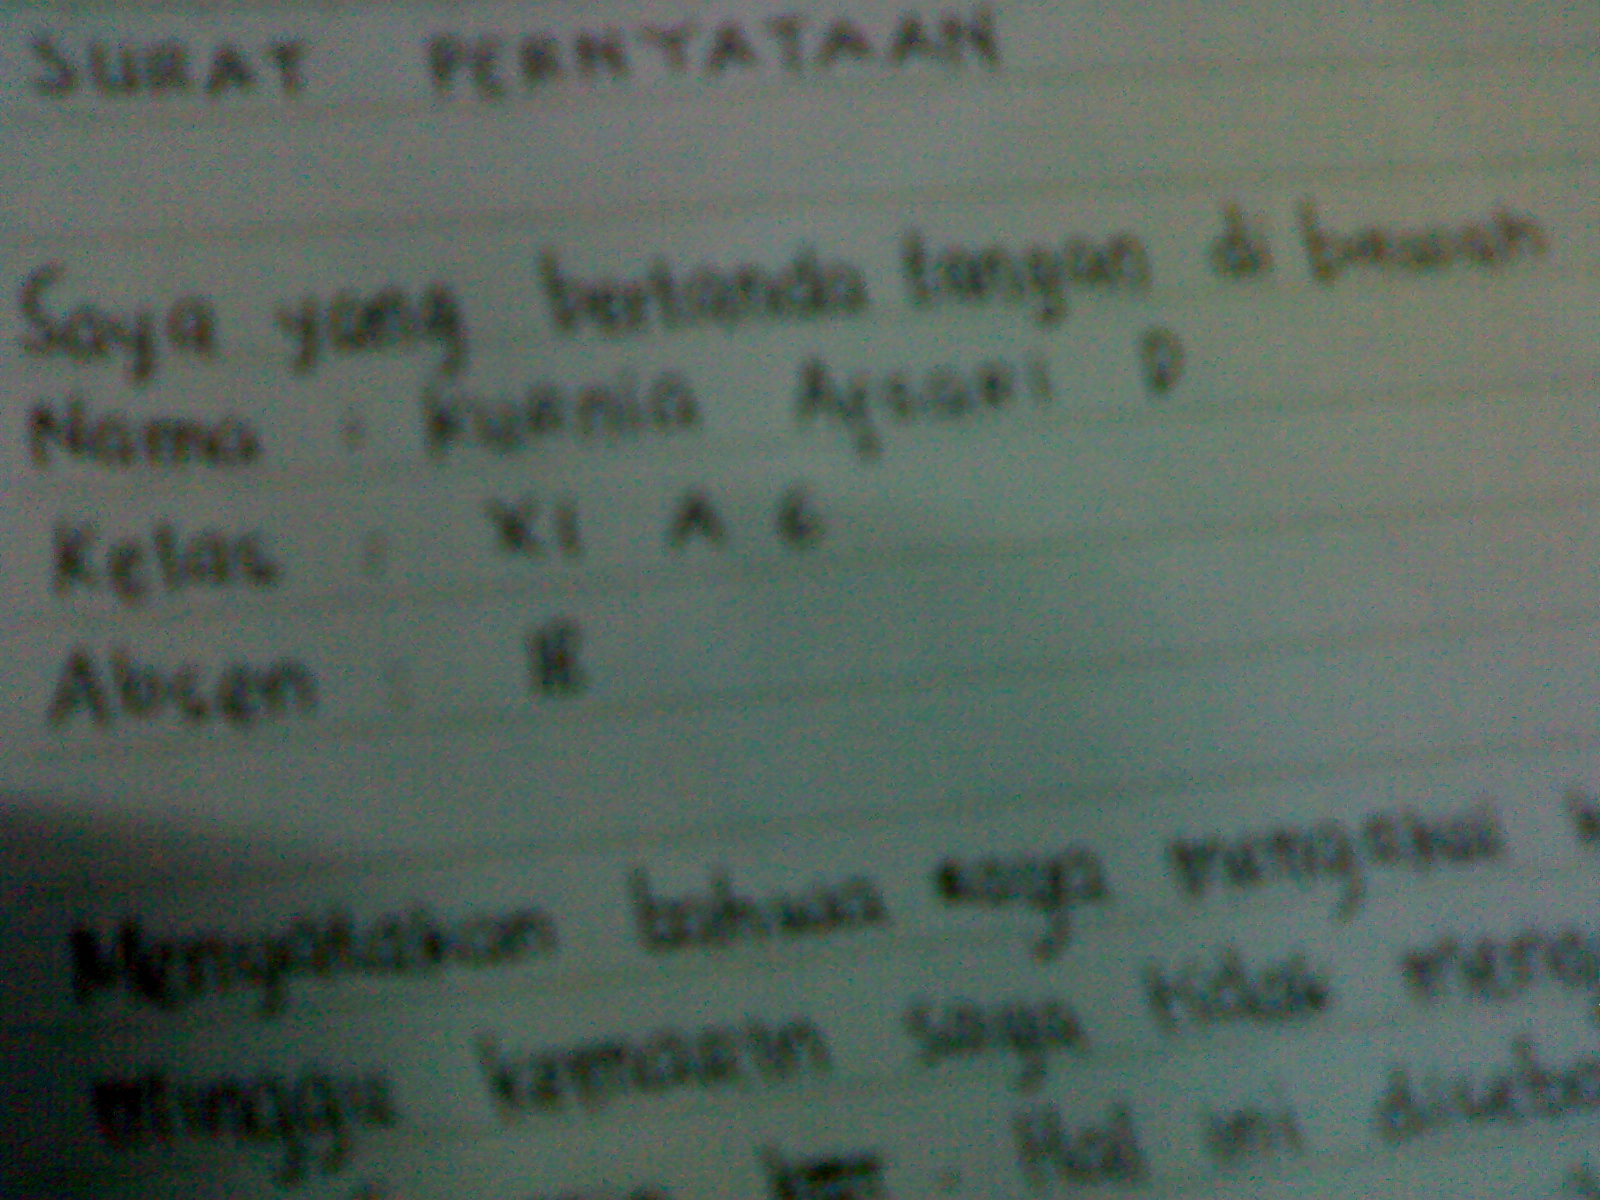 SURAT PERNYATAAN
Saya yang bertanda tangan di bawah
Nama : Kurnia Apsari D
Kelas : XI A 6
Absen :
Menyatakan bahwa saya mengakui
minggu kemarin saya tidak
Hal ini